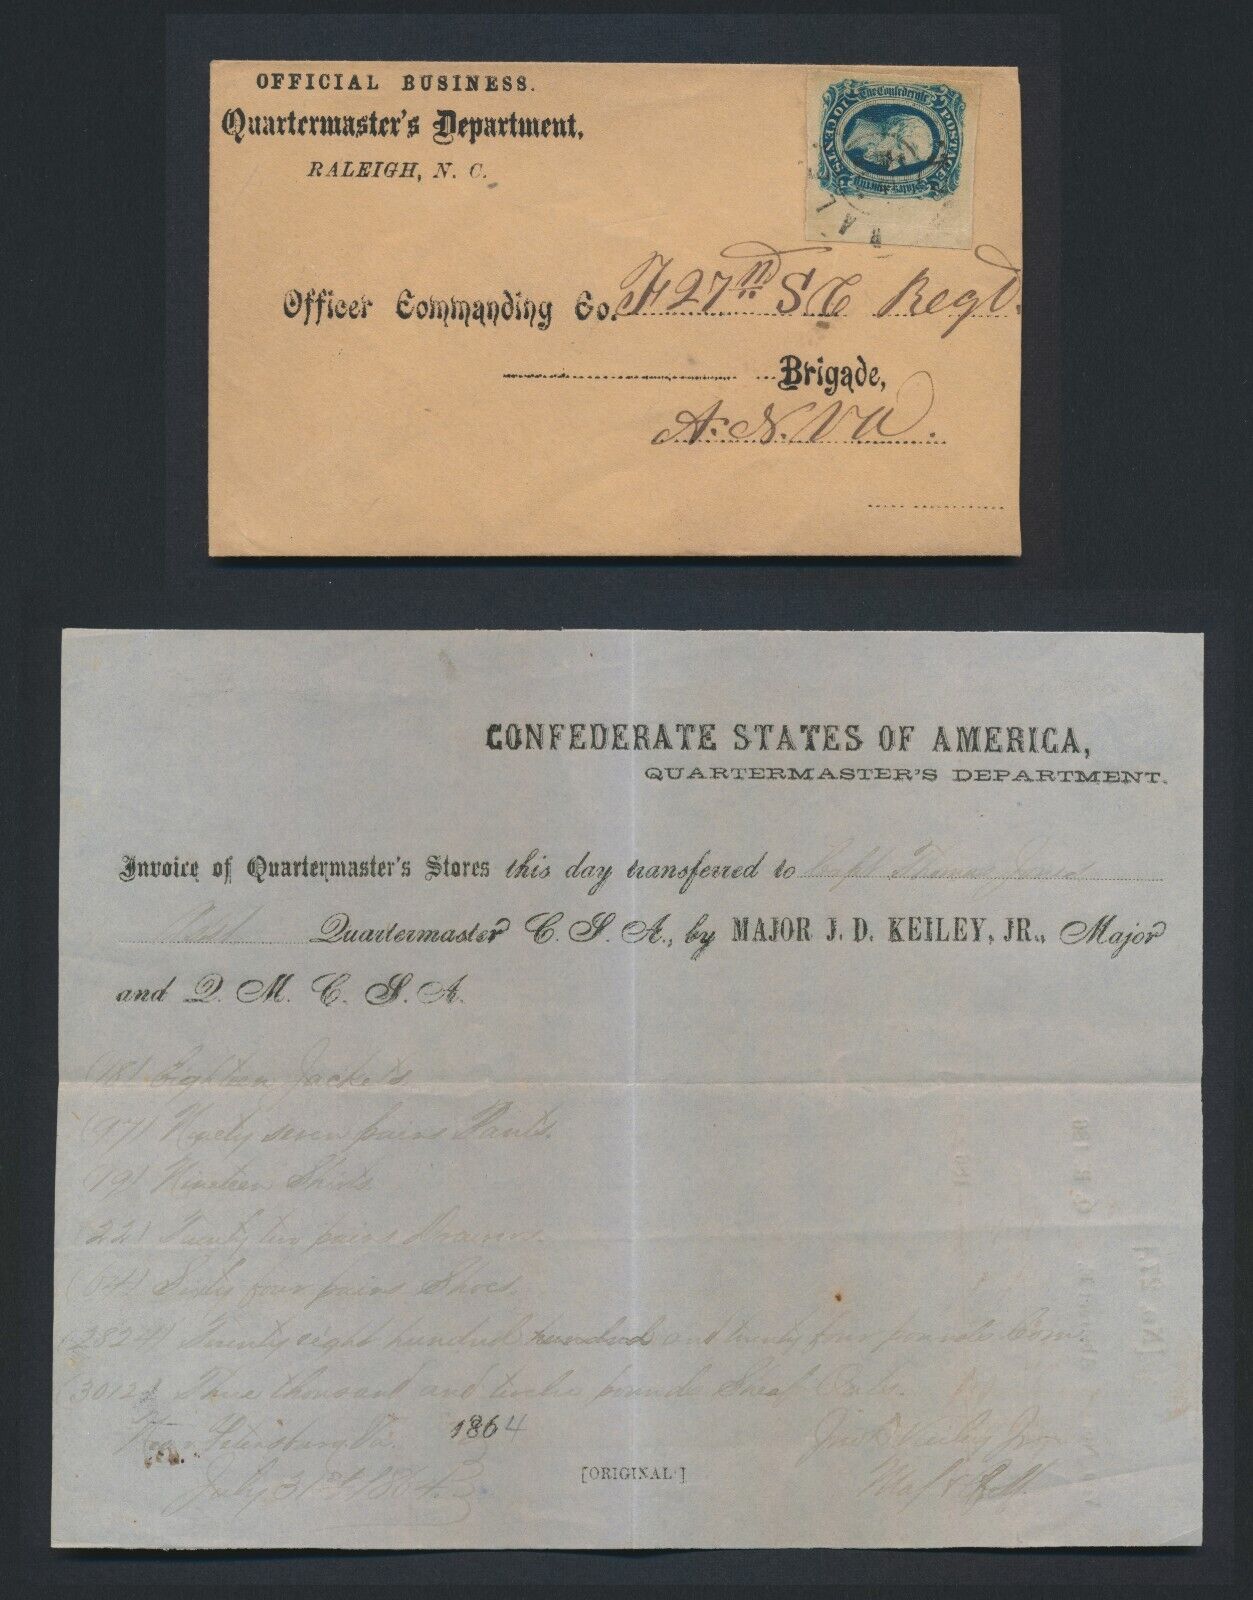 OFFICIAL BUSINESS.
Quartermaster's Department,
RALEIGH, N. C.
The Confederate
POSTAGE
States America
10 CENTS
RAL
Officer Commanding Co. H 27th S C Regt.
Brigade,
A. N. Va.
CONFEDERATE STATES OF AMERICA,
QUARTERMASTER'S DEPARTMENT.
Invoice of Quartermaster's Stores this day transferred to Capt Thomas
Asst Quartermaster C. S. A., by MAJOR J. D. KEILEY, JR., Major
and Q. M. C. S. A.
(18) Eighteen Jackets
(97) Ninety seven pairs Pants.
(19) Nineteen Shirts
(22) Twenty two pairs Drawers
(64) Sixty four pairs Shoes.
(2824) Twenty eight hundred hundred and twenty four pounds Corn.
(3012) Three thousand and twelve pounds Sheaf Oats
Near Petersburg Va. 1864
July 31st 1864
[ORIGINAL.]
Maj & QM